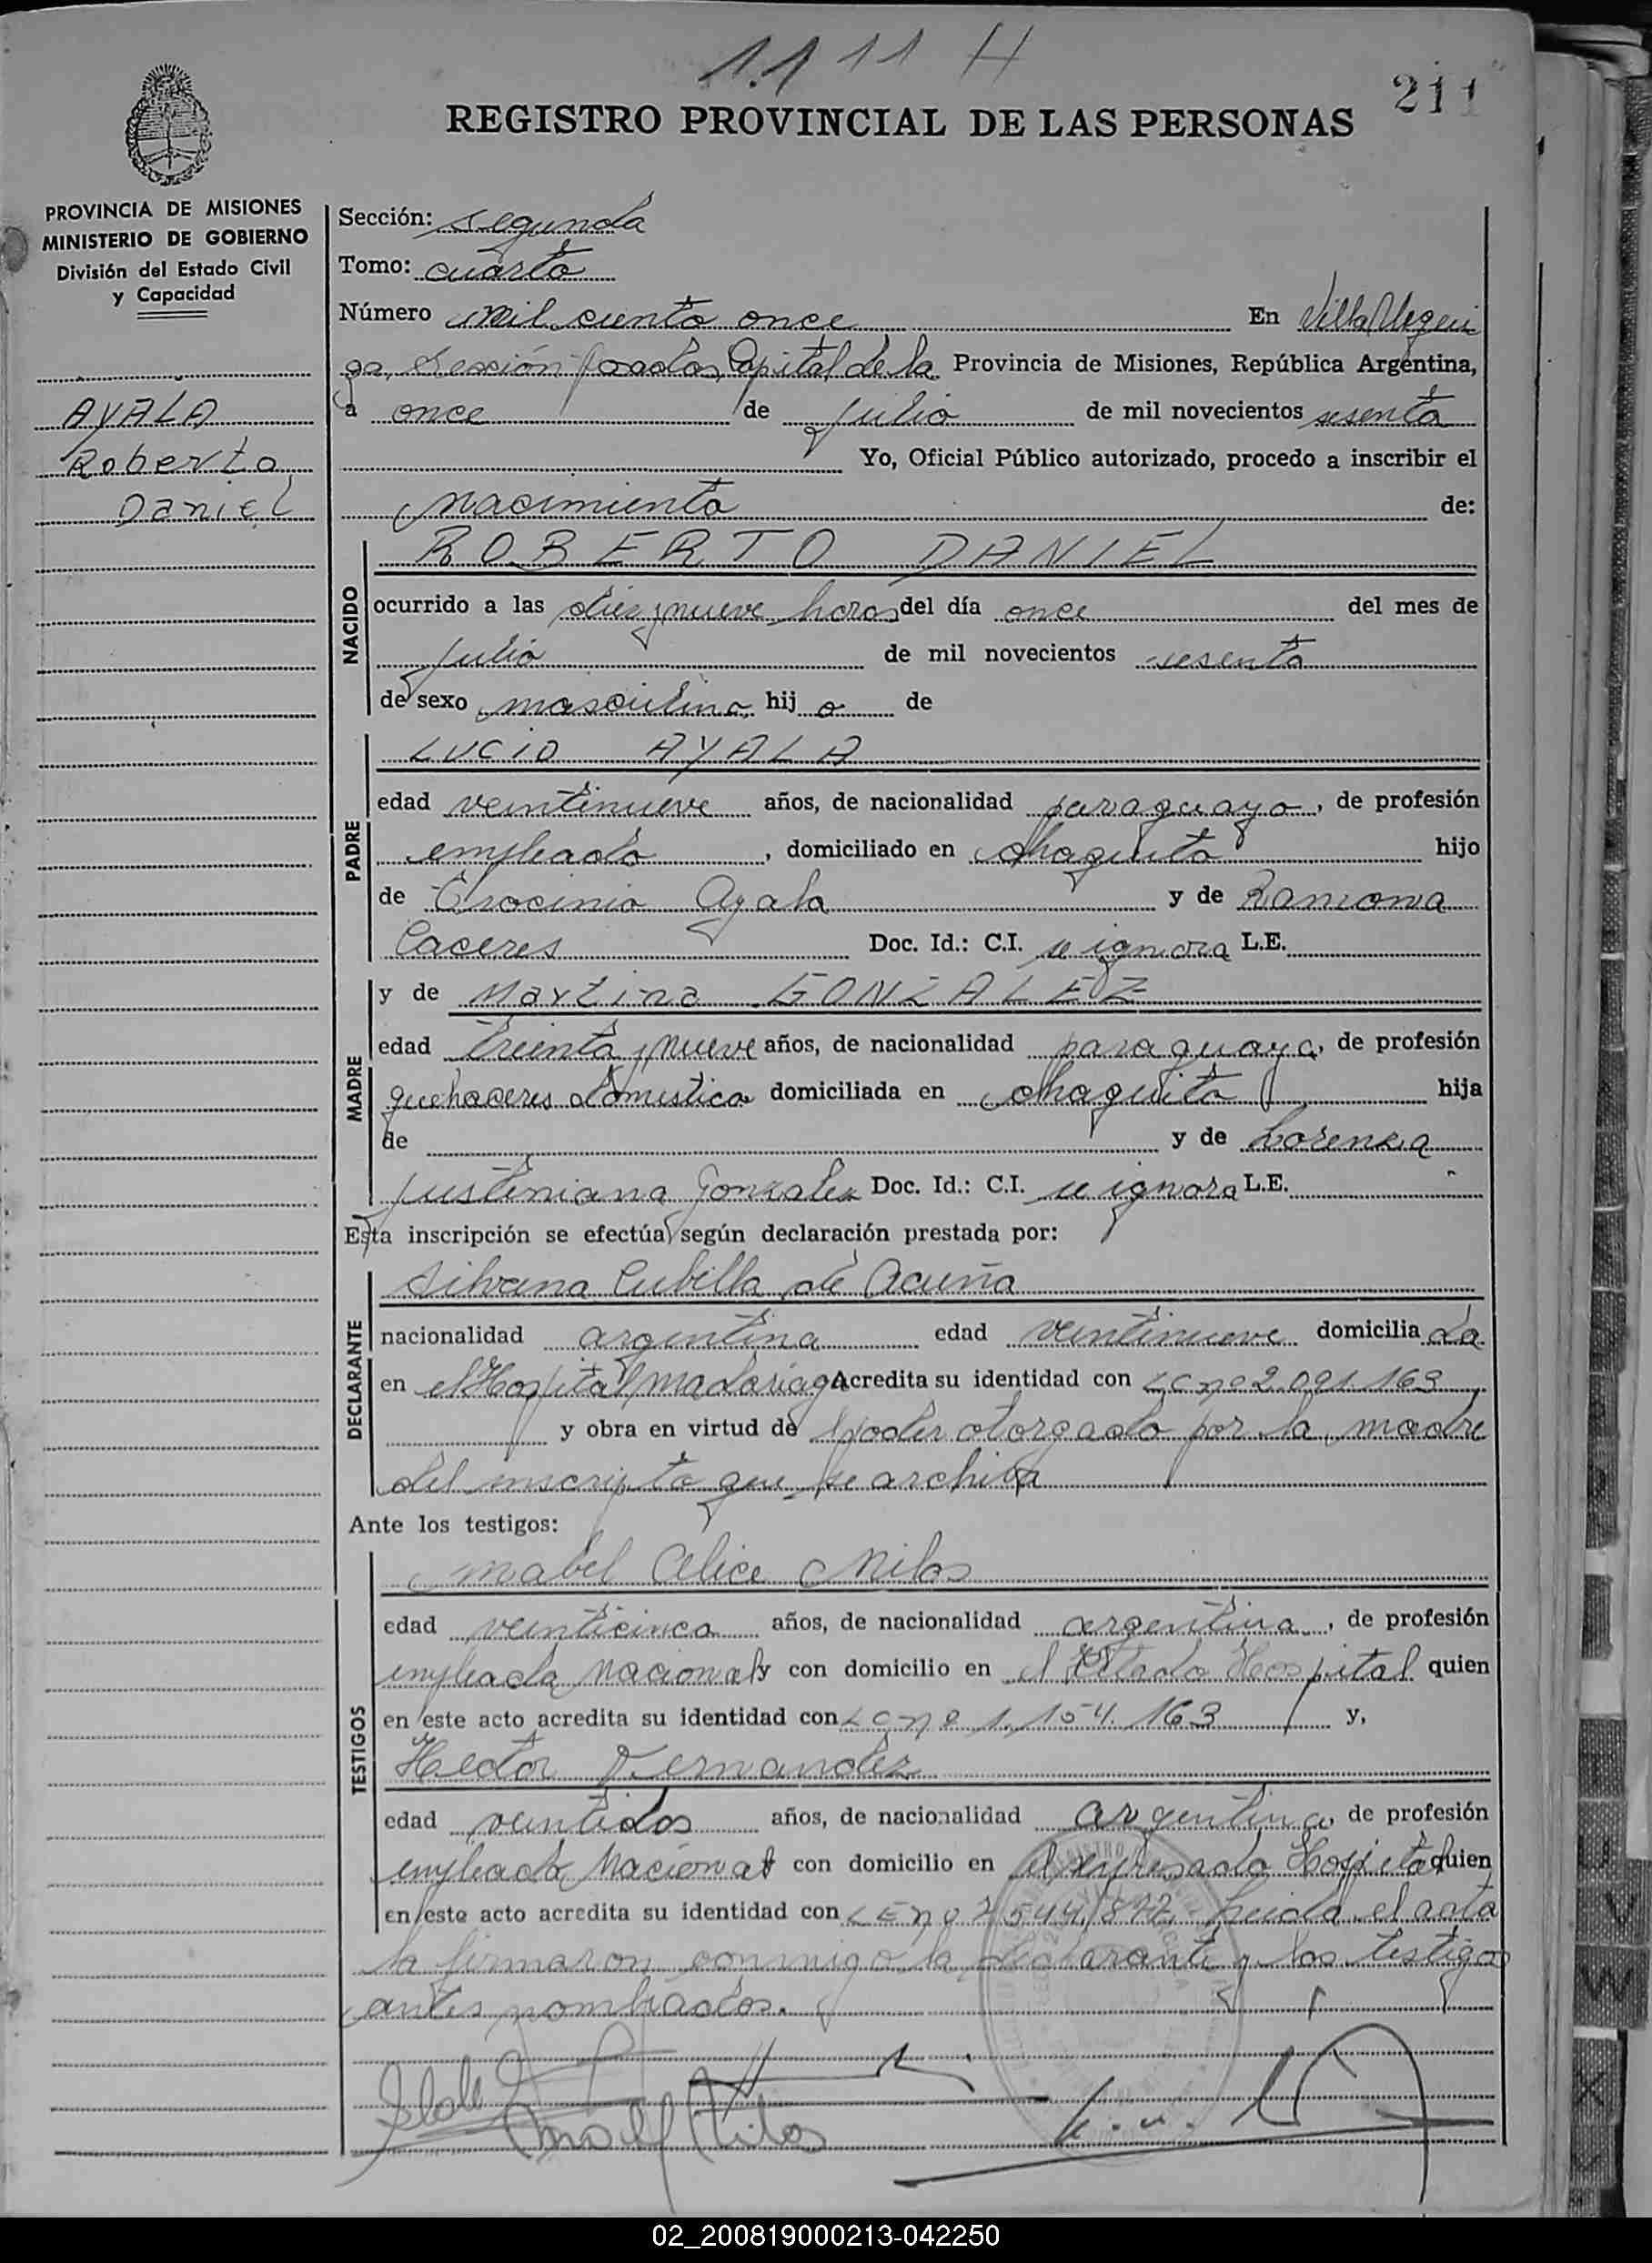 1.111 H
211
REGISTRO PROVINCIAL DE LAS PERSONAS
PROVINCIA DE MISIONES
MINISTERIO DE GOBIERNO
División del Estado Civil
y Capacidad
AYALA
Roberto
Daniel
Sección: segunda
Tomo: cuarto
Número mil ciento once En Villa Urqui
za, Sección Posadas, Capital de la Provincia de Misiones, República Argentina,
a once de julio de mil novecientos sesenta
Yo, Oficial Público autorizado, procedo a inscribir el
nacimiento de:
NACIDO
ROBERTO DANIEL
ocurrido a las diez y nueve horas del día once del mes de
julio de mil novecientos sesenta
de sexo masculino hij o de
PADRE
LUCIO AYALA
edad veintinueve años, de nacionalidad paraguayo, de profesión
empleado, domiciliado en Chaquito hijo
de Ayala y de Ramona
Caceres Doc. Id.: C.I. se ignora L.E.
MADRE
y de Martina GONZALEZ
edad treinta y nueve años, de nacionalidad paraguaya, de profesión
quehaceres domestico domiciliada en Chaquito hija
de y de Lorenza
Justiniana Gonzalez Doc. Id.: C.I. se ignora L.E.
Esta inscripción se efectúa según declaración prestada por:
DECLARANTE
Silvana Cubilla de Acuña
nacionalidad argentina edad veintinueve domicilia da
en el Hospital Madariaga Acredita su identidad con LC nº 2.091.163
y obra en virtud de poder otorgado por la madre
del inscripto que se archiva
Ante los testigos:
TESTIGOS
Mabel Alice Milos
edad veinticinco años, de nacionalidad argentina, de profesión
empleada Nacional y con domicilio en el citado Hospital quien
en este acto acredita su identidad con LC nº 1.154.163 y,
Hector Fernandez
edad veintidos años, de nacionalidad argentino, de profesión
empleado Nacional con domicilio en el expresado Hospital quien
en este acto acredita su identidad con LE nº 7544.877. Leida el acta
la firmaron conmigo la declarante y los testigos
antes nombrados.
02_200819000213-042250